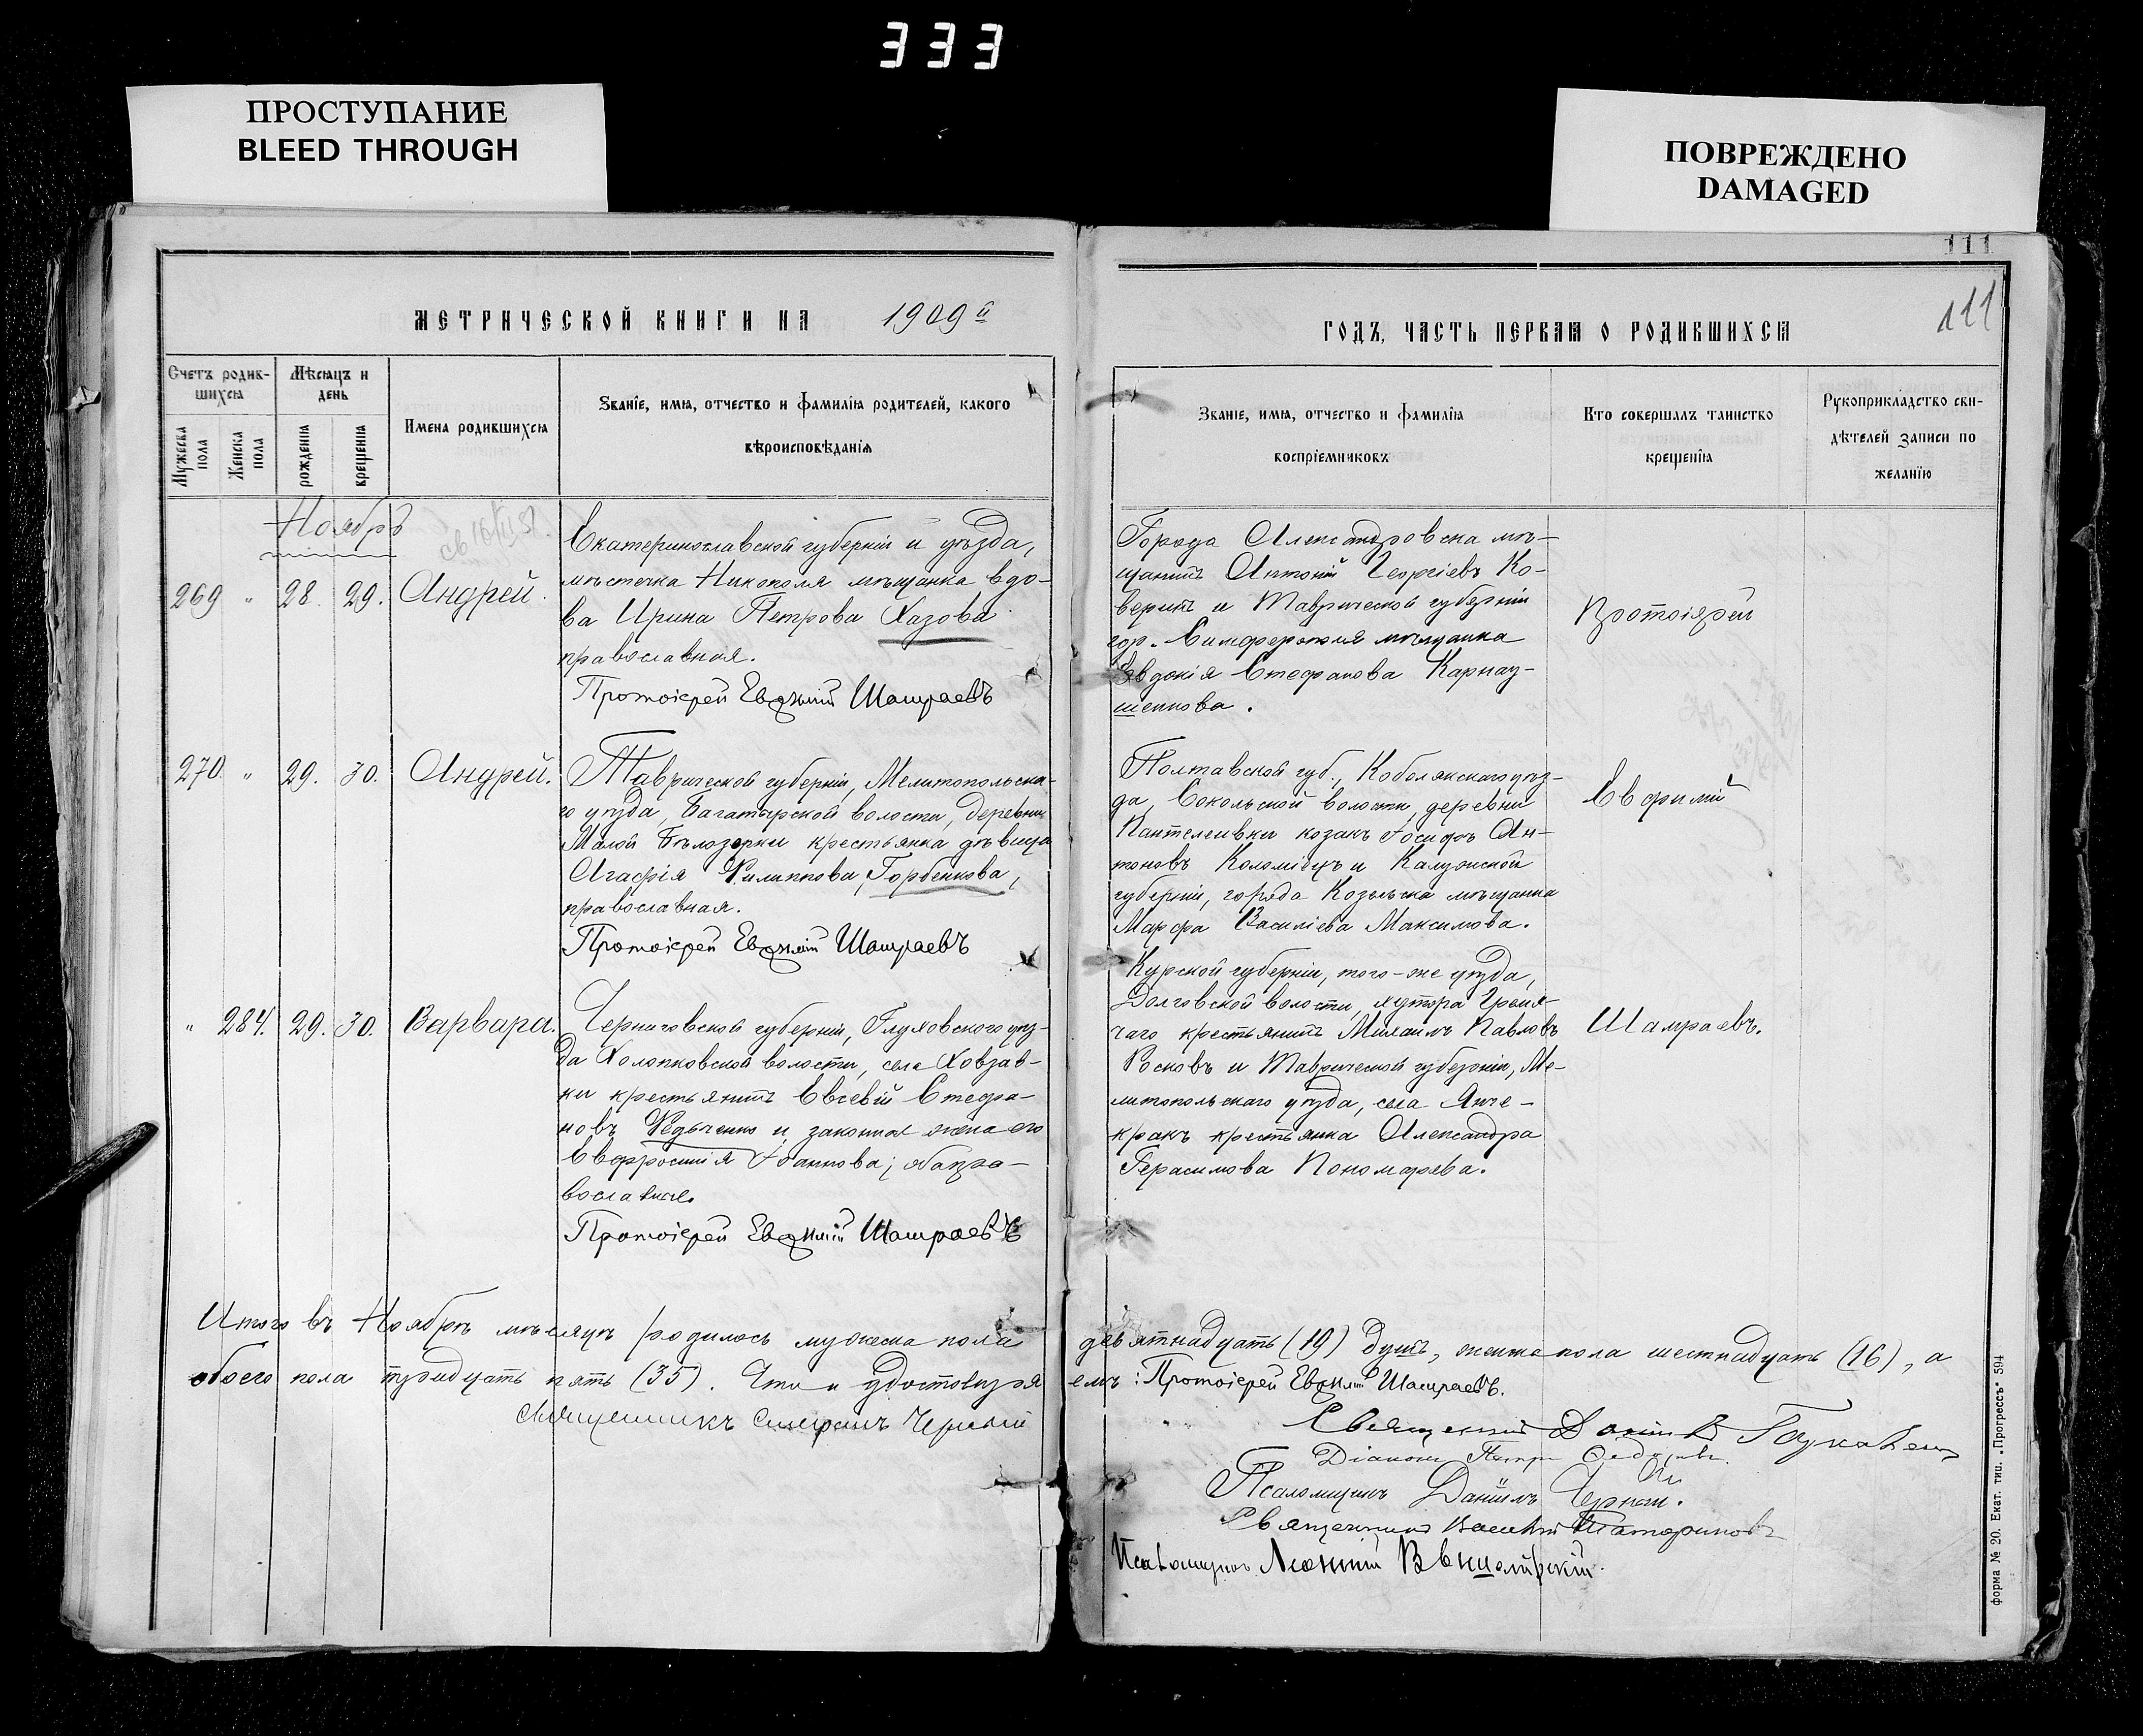 333
ПРОСТУПАНИЕ
BLEED THROUGH
ПОВРЕЖДЕНО
DAMAGED
МЕТРИЧЕСКОЙ КНИГИ НА 1909й
Счетъ родившихся
Мѣсяцъ и день
Мужеска пола
Женска пола
рождения
крещения
Имена родившихся
Званіе, имя, отчество и фамилія родителей, какого
вѣроисповѣданія
Ноябрь
269 " 28. 29. Андрей.
Екатеринославской губерніи и уѣзда,
мѣстечка Никополя мѣщанка вдо-
ва Ирина Петрова Хазова
православная.
Протоіерей Евфимій Шамраевъ
270 " 29. 30. Андрей.
Таврической губерніи, Мелитопольска-
го уѣзда, Багатырской волости, деревни
Малой Бѣлозерки крестьянка дѣвица
Агафія Филиппова Горбенкова,
православная.
Протоіерей Евфимій Шамраевъ
" 284. 29. 30. Варвара.
Черниговской губерніи, Глуховского уѣз-
да Холопковской волости, села Ховзав-
ки крестьянинъ Евсевій Стефа-
новъ Федченко и законная жена его
Евфросинія Іоаннова; оба пра-
вославные.
Протоіерей Евфимій Шамраевъ
Итого въ Ноябрѣ мѣсяцѣ родилось мужеска пола
обоего пола тридцать пять (35). Что и удостовѣря
Священникъ Симеонъ Черный
111
111
ГОДЪ, ЧАСТЬ ПЕРВАЯ О РОДИВШИХСЯ
Званіе, имя, отчество и фамилія
воспріемниковъ
Кто совершалъ таинство
крещенія
Рукоприкладство сви-
дѣтелей записи по
желанію
Города Александровска мѣ-
щанинъ Антоній Георгіевъ Ко-
веринъ и Таврической губерніи
гор. Симферополя мѣщанка
Евдокія Стефанова Карнау-
шенкова.
Протоіерей
Полтавской губ., Кобелякскаго уѣз-
да, Сокольской волости, деревни
Пантелеивки козакъ Іосифъ Ан-
тоновъ Коломіецъ и Калужской
губерніи, города Козельска мѣщанка
Марфа Василіева Максимова.
Евфимій
Курской губерніи, того-же уѣзда,
Долговской волости, хутора Гремя-
чаго крестьянинъ Михаилъ Павловъ
Росковъ и Таврической губерніи, Ме-
литопольскаго уѣзда, села Янче-
кракъ крестьянка Александра
Герасимова Пономарева.
Шамраевъ.
девятнадцать (19) душъ, женска пола шестнадцать (16), а
емъ: Протоіерей Евфимій Шамраевъ.
Священникъ
Діаконъ Петръ
Псаломщикъ Даніилъ Черный.
Священникъ Василій
Псаломщикъ
форма № 20. Екат. тип. „Прогрессъ" 594